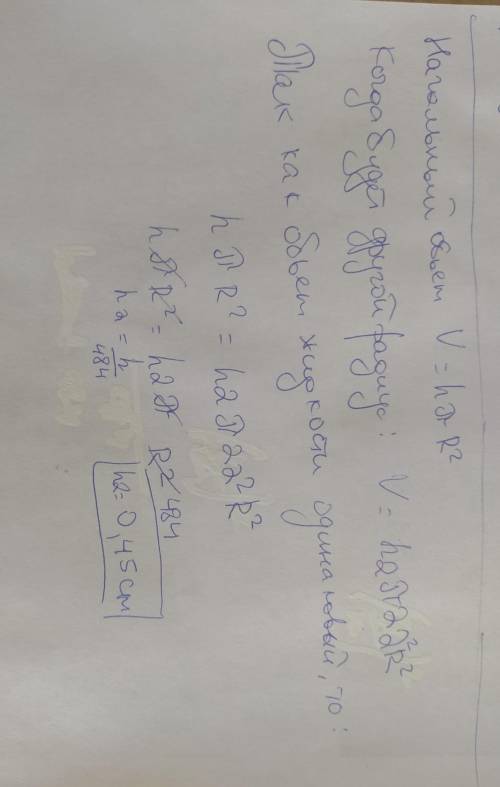 Начальный объем V = hπR²
Когда будет другой радиус: V = h2π22²R²
Так как объем жидкости одинаковый, то:
hπR² = h2π22²R²
hπR² = h2πR²484
h2 = h/484
h2 = 0,45 см